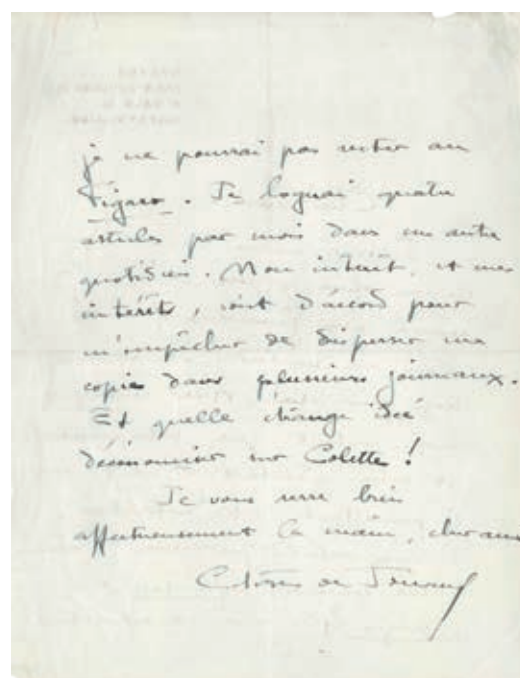 je ne pourrai pas rester au
Figaro. Je loguai quatre
articles par mois dans un autre
quotidien. Mon intérêt, et mes
intérêts, sont d'accord pour
m'empêcher de disperser ma
copie dans plusieurs journaux.
Et quelle étrange idée
démonia sur Colette !
Je vous serre bien
affectueusement la main, cher ami
Colette de Jouvenel